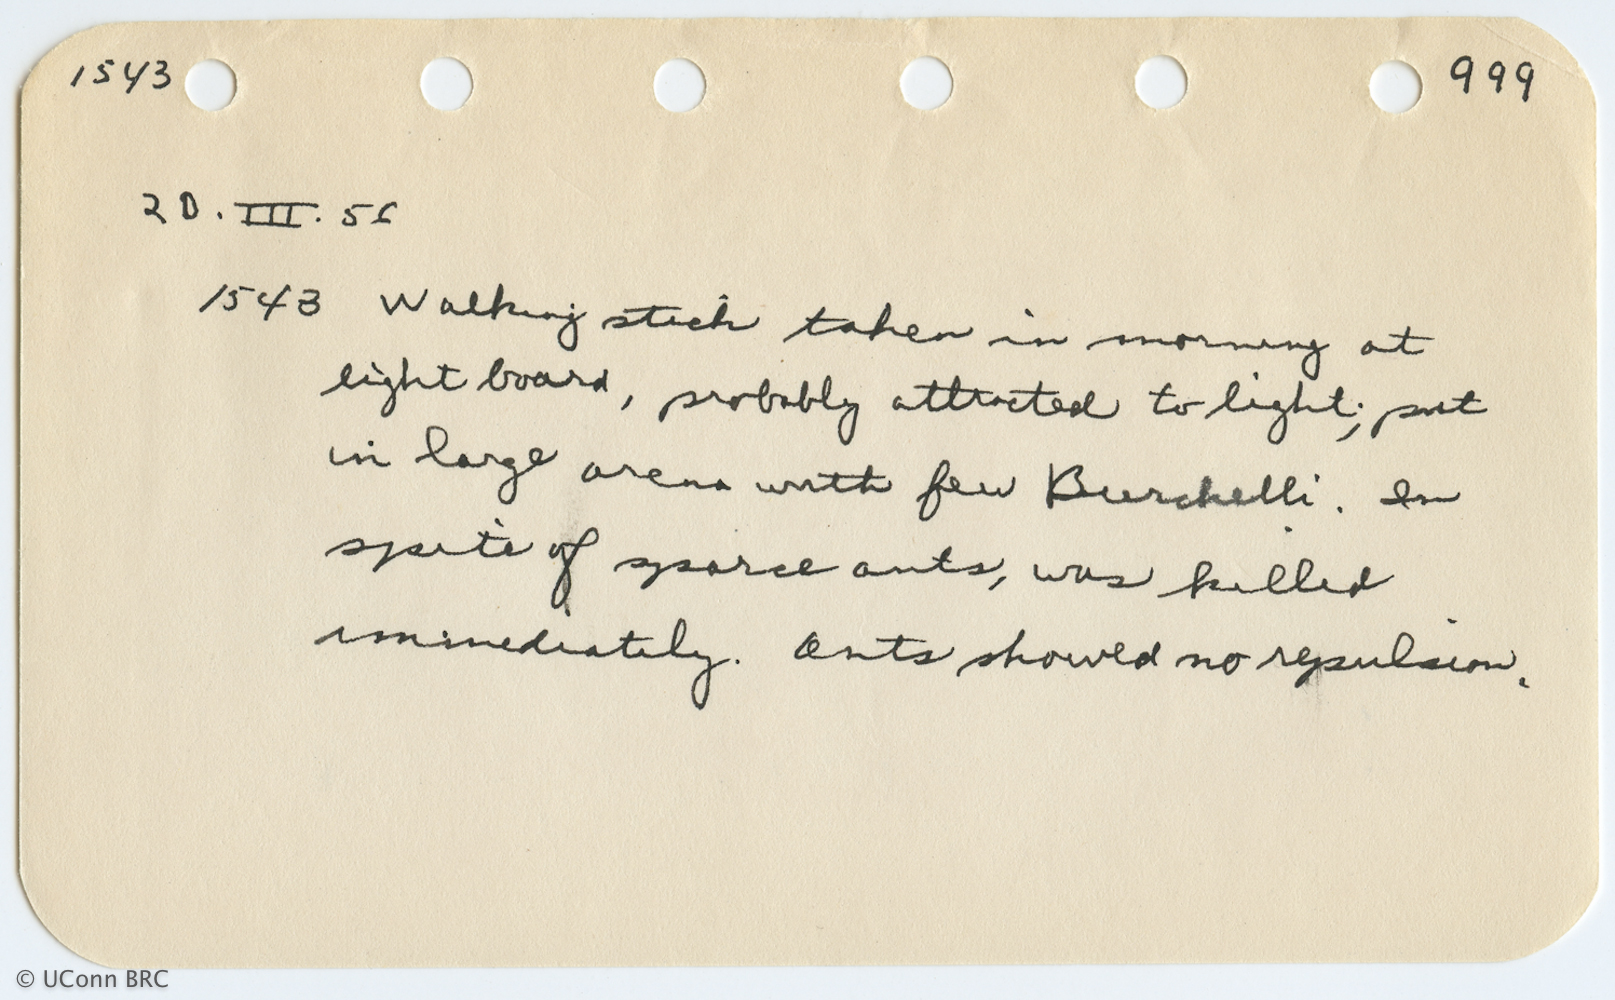 1543 999
20.III.56
1543 Walking stick taken in morning at
light board, probably attracted to light; put
in large arena with few Burchelli. In
spite of sparse ants, was killed
immediately. Ants showed no repulsion.
© UConn BRC